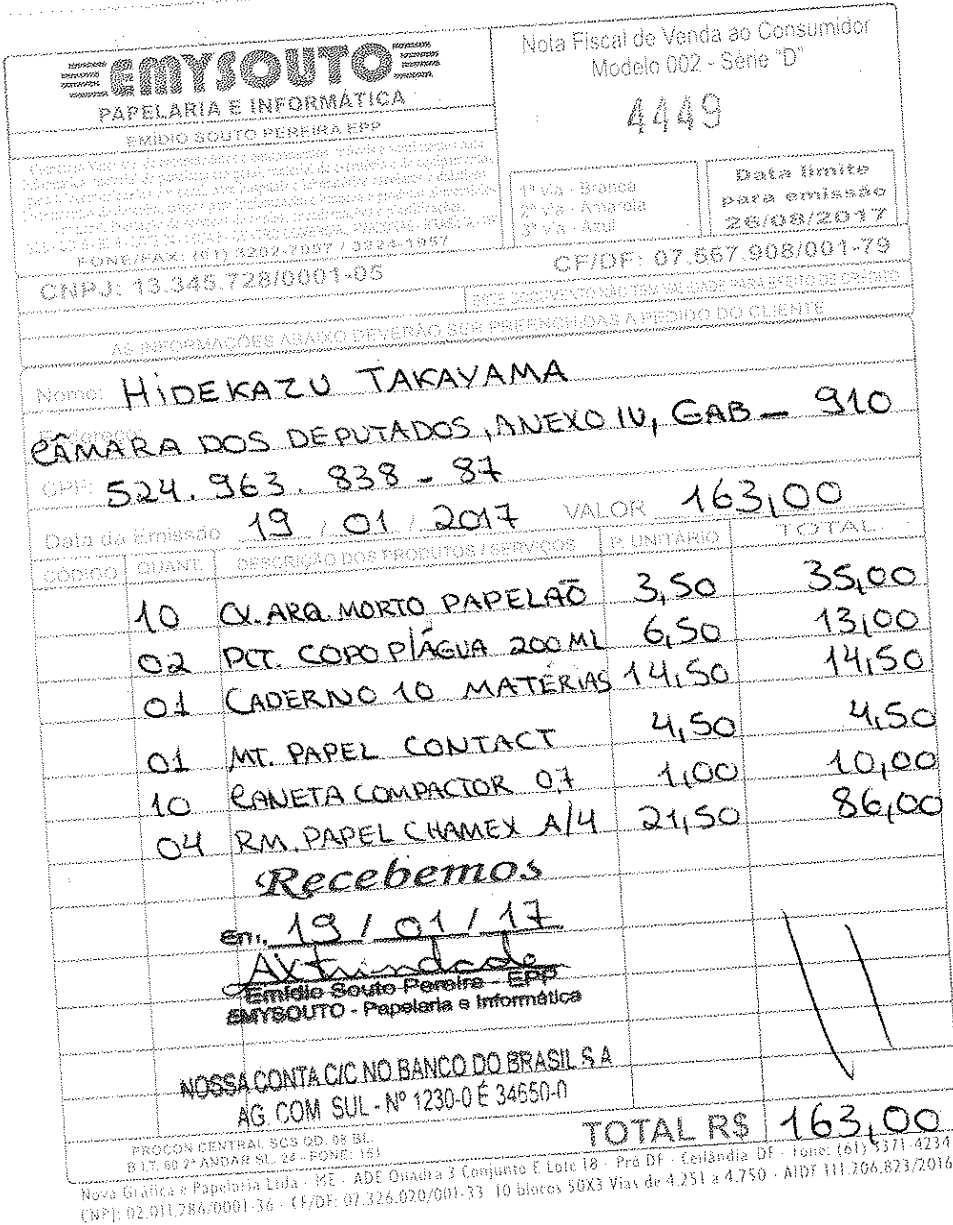 EMYSOUTO
PAPELARIA E INFORMÁTICA
EMÍDIO SOUTO PEREIRA EPP
FONE/FAX: (61) 3202-7057 / 3224-1957
CNPJ: 13.345.728/0001-05
Nota Fiscal de Venda ao Consumidor
Modelo 002 - Série "D"
4449
1ª Via - Branca
2ª Via - Amarela
3ª Via - Azul
Data limite
para emissão
26/08/2017
CF/DF: 07.567.908/001-79
ESTE DOCUMENTO NÃO TEM VALIDADE PARA EFEITO DE CRÉDITO
AS INFORMAÇÕES ABAIXO DEVERÃO SER PREENCHIDAS A PEDIDO DO CLIENTE
Nome: HIDEKAZU TAKAYAMA
Endereço: CÂMARA DOS DEPUTADOS, ANEXO IV, GAB - 910
CPF: 524.963.838-87
Data da Emissão 19 / 01 / 2017 VALOR 163,00
CÓDIGO QUANT. DESCRIÇÃO DOS PRODUTOS / SERVIÇOS P. UNITÁRIO TOTAL
10 CX. ARQ. MORTO PAPELÃO 3,50 35,00
02 PCT. COPO P/ÁGUA 200 ML 6,50 13,00
01 CADERNO 10 MATÉRIAS 14,50 14,50
01 MT. PAPEL CONTACT 4,50 4,50
10 CANETA COMPACTOR 07 1,00 10,00
04 RM. PAPEL CHAMEX A/4 21,50 86,00
Recebemos
Em. 19 / 01 / 17
AXtrindade
Emídio Souto Pereira - EPP
EMYSOUTO - Papelaria e Informática
NOSSA CONTA C/C NO BANCO DO BRASIL S A
AG. COM SUL - Nº 1230-0 É 34650-0
TOTAL R$ 163,00
PROCON CENTRAL SCS QD. 08 BL.
B LT. 60 2º ANDAR SL. 24 - FONE: 151
Nova Gráfica e Papelaria Ltda - ME - ADE Quadra 3 Conjunto E Lote 18 - Pró DF - Ceilândia DF - Fone: (61) 3371-4234
CNPJ: 02.011.786/0001-36 - CF/DF: 07.326.020/001-33 10 blocos 50X3 Vias de 4.251 a 4.750 - AIDF 111.206.823/2016